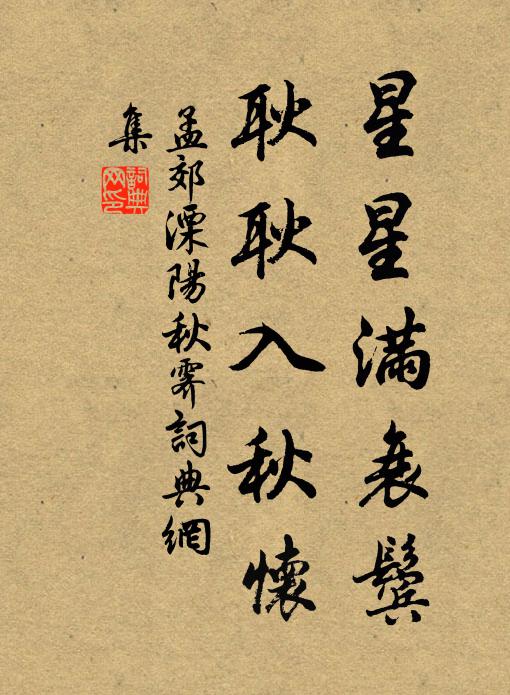 星星滿衰鬢
耿耿入秋懷
孟郊溧陽秋霽詞典網
集
詞典
网印